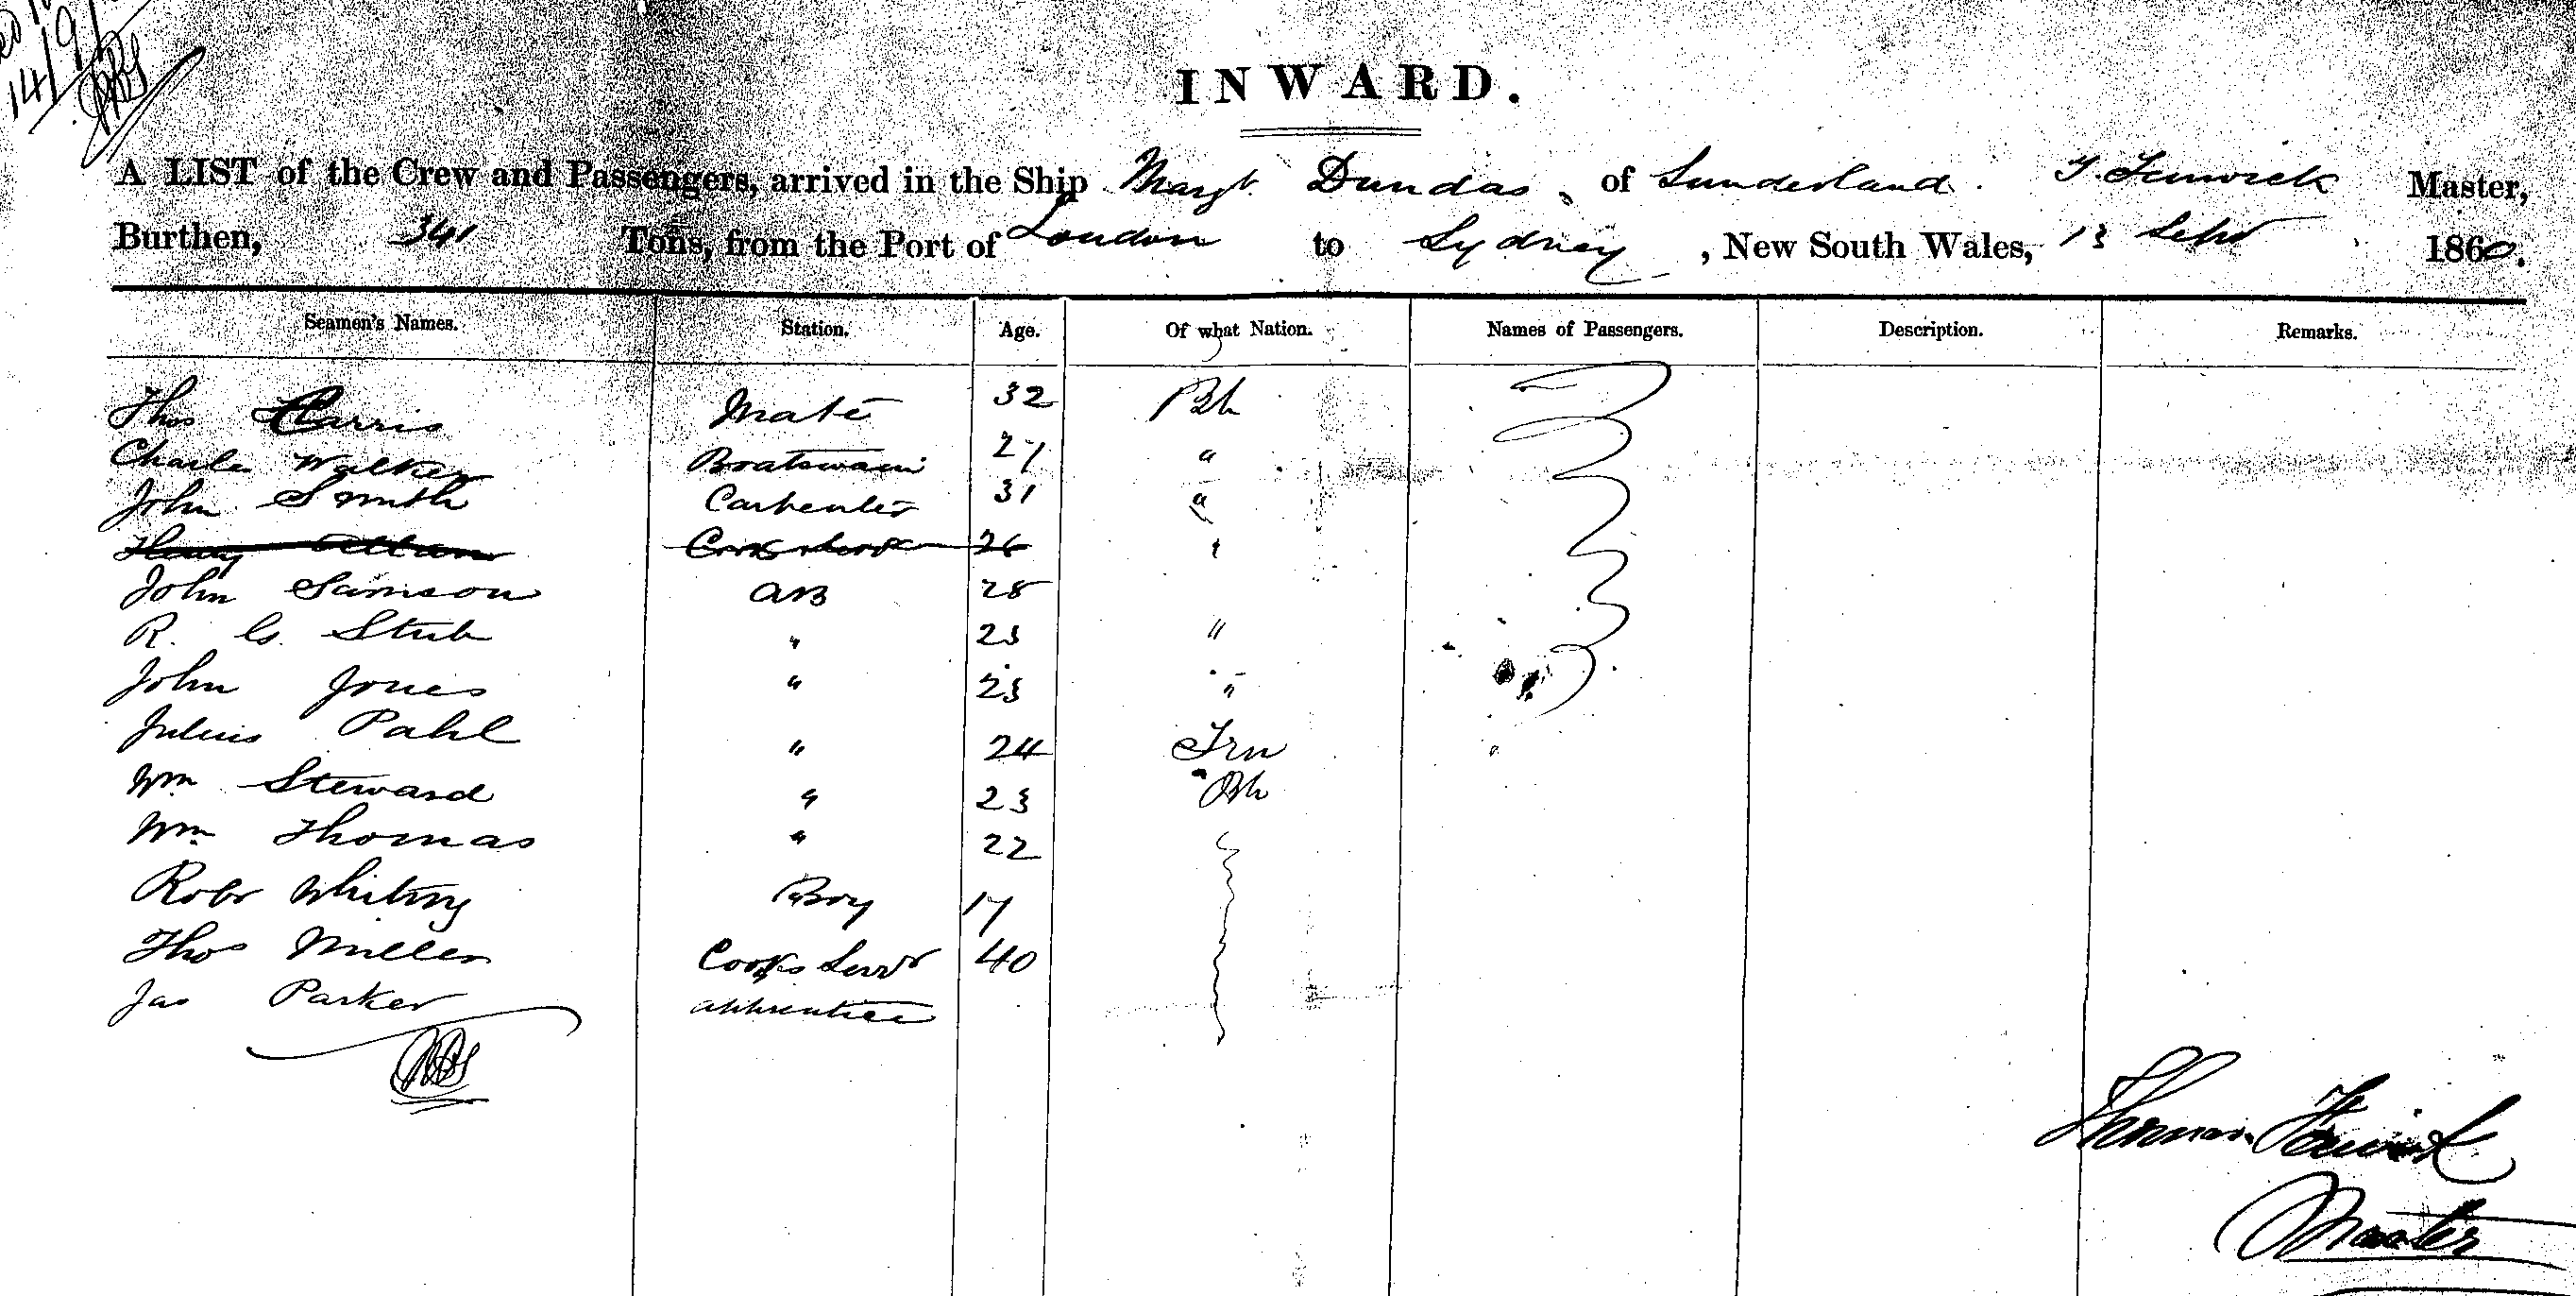 14/9/
INWARD.
A LIST of the Crew and Passengers, arrived in the Ship Margt. Dundas, of Sunderland. T. Fenwick Master,
Burthen, 341 Tons, from the Port of London to Sydney, New South Wales, 13 Sepr 1860.
Seamen's Names. Station. Age. Of what Nation. Names of Passengers. Description. Remarks.
Thos Carris Mate 32 Bh
Charles Walker Boatswain 27 "
John Smith Carpenter 31 "
Henry Allan Cook 26 "
John Samson AB 28
R. G. Stub " 23 "
John Jones " 23 "
Julius Pahl " 24 Frn
Wm Steward " 23 Bh
Wm Thomas " 22
Robt Whiting Boy 17
Thos Miller Cook & Stewd 40
Jas Parker apprentice
Thomas Fenwick
Master